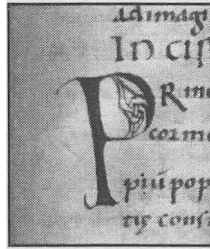 Ad imagi
In cip
P Rin
cor me
piū pop
tis cons